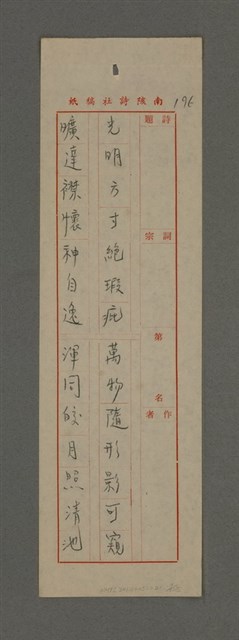 南陔詩社稿紙
196
詩題
詞宗
第 名
作者
光明方寸絕瑕疵 萬物隨形影可窺
曠達襟懷神自逸 渾同皎月照清池